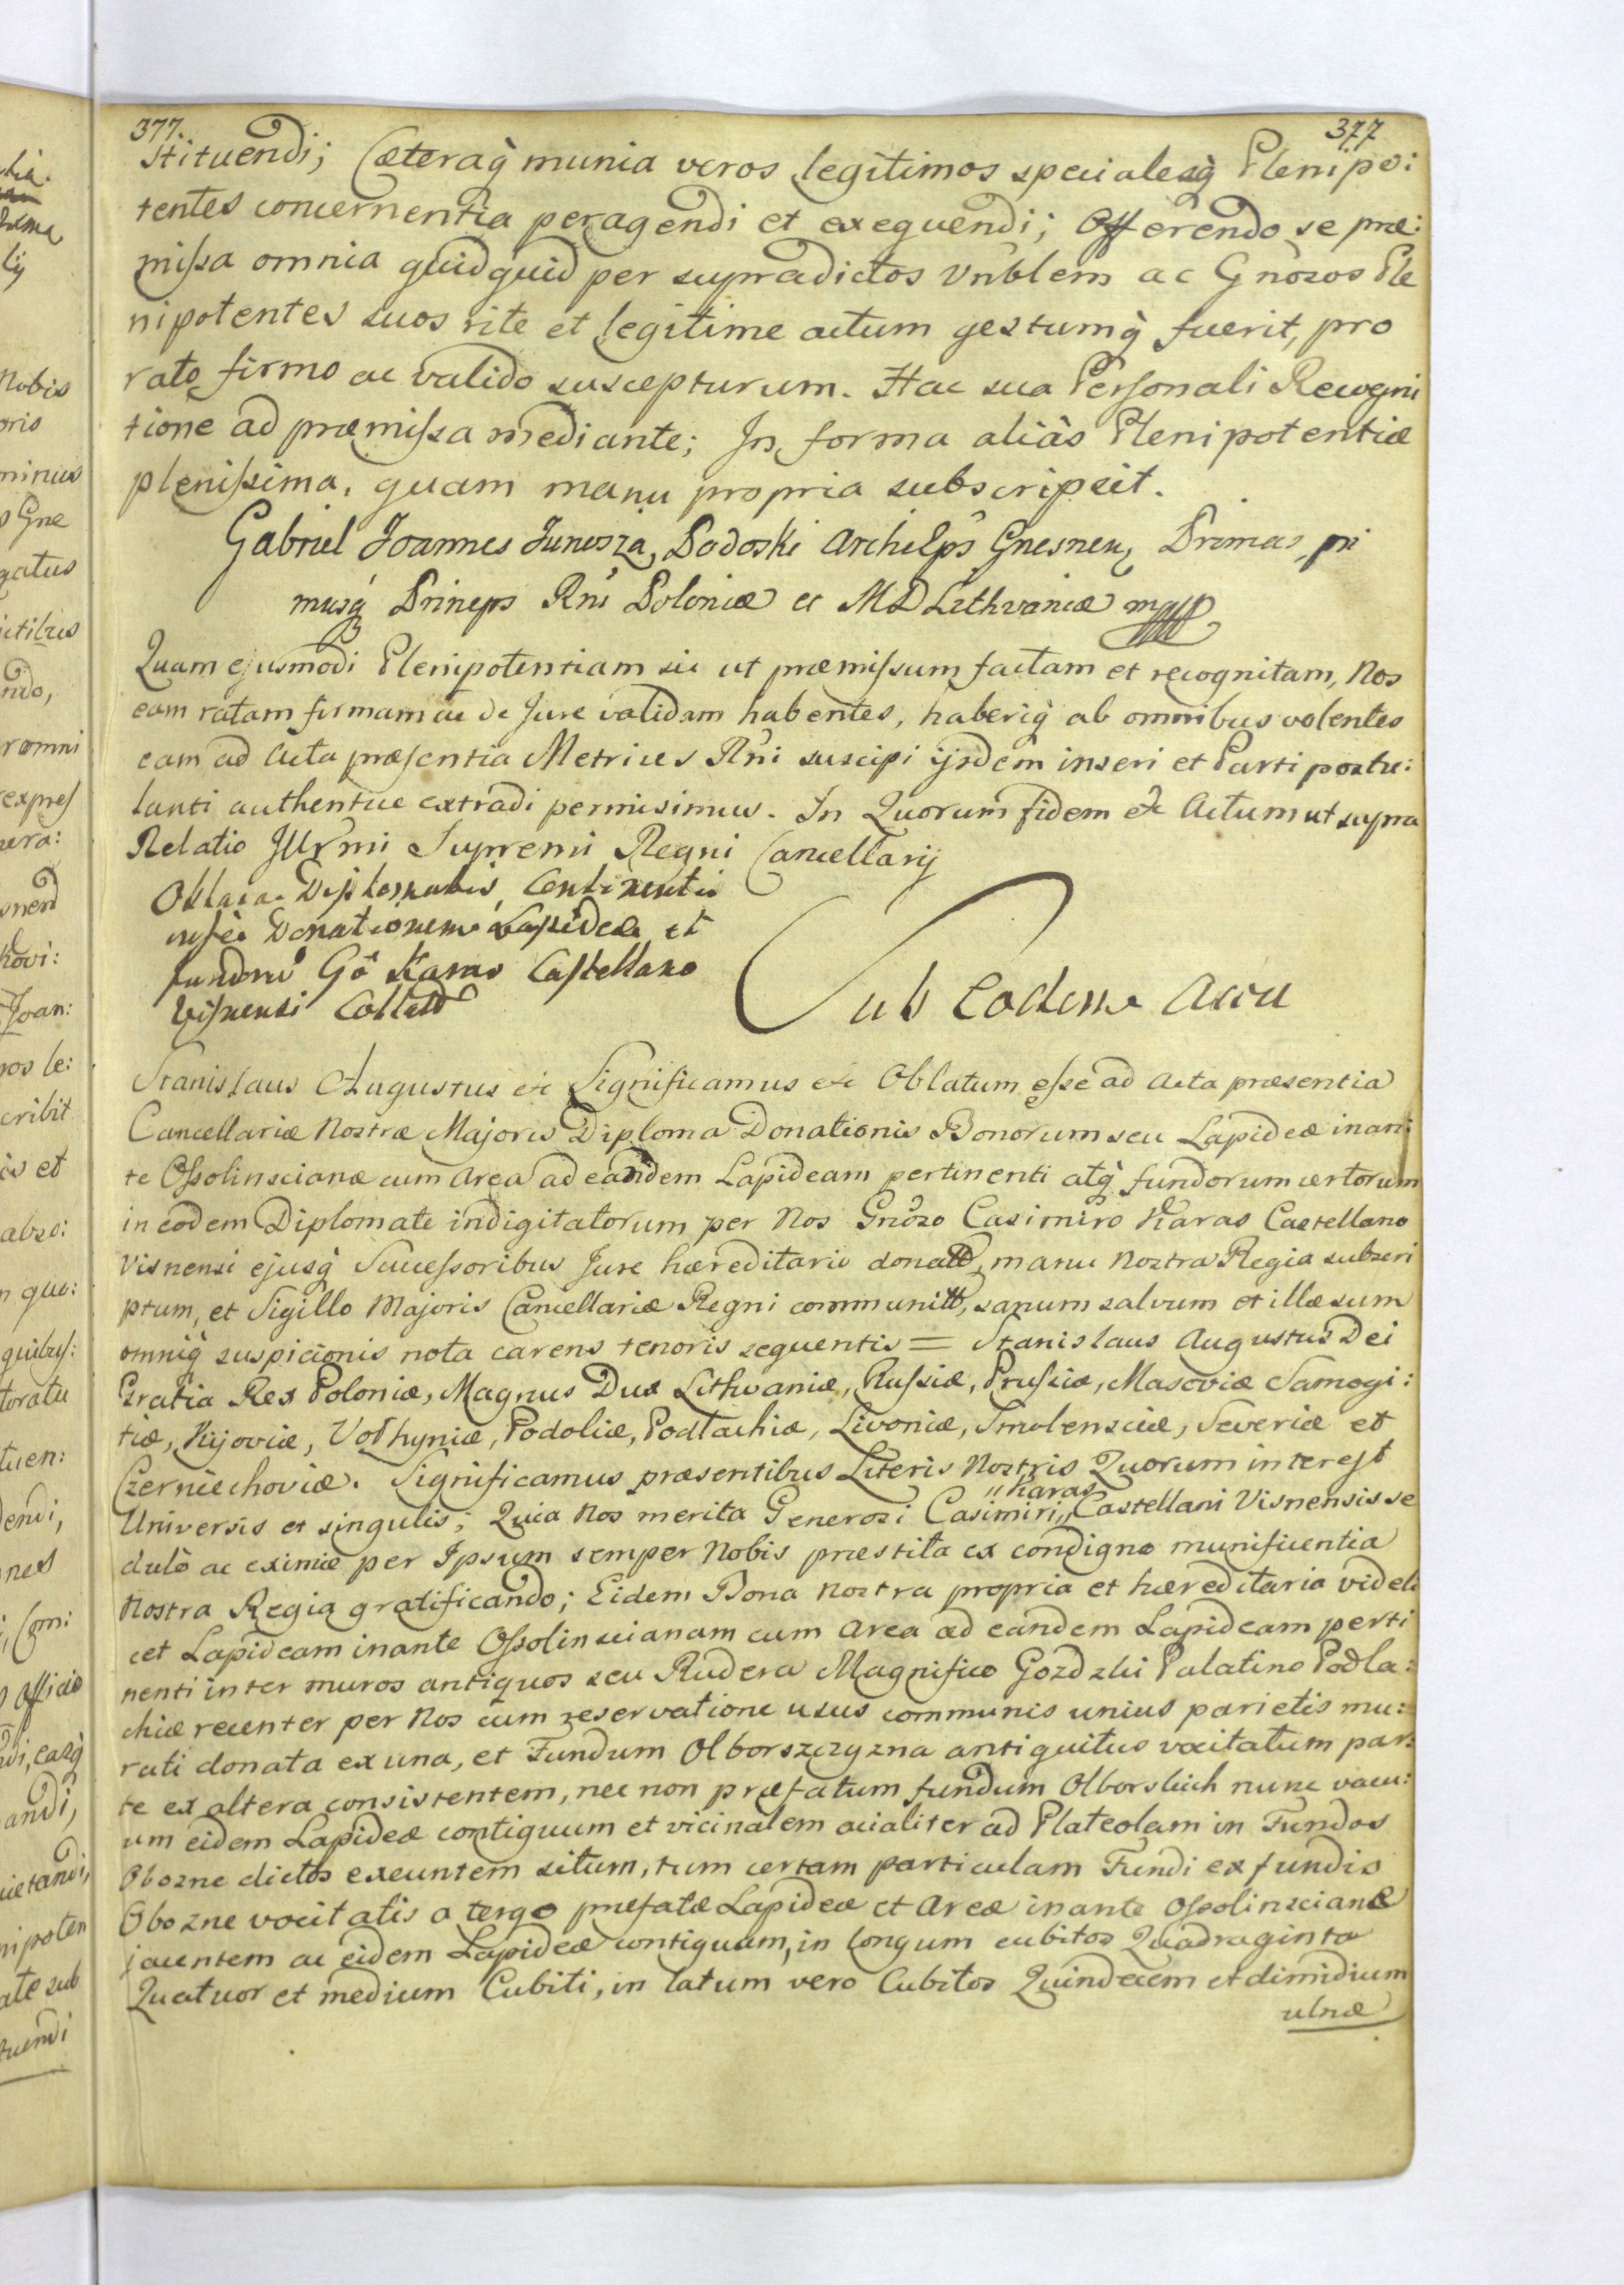 377. 377
stituendi; Cæteraq̀ munia veros legitimos specialesq̀ Plenipo:
tentes concernentia peragendi et exequendi; Offerendo se præ:
miſsa omnia quidquid per supradictos Vnblem ac Gnosos Ple
nipotentes suos rite et legitime actum gestumq̀ fuerit, pro
rato firmo ac valido suscepturum. Hac sua Perſonali Recogni
tione ad præmiſsa mediante; In forma aliàs Plenipotentiæ
pleniſsima, quam manu propria subscripsit.
Gabriel Joannes Junosza Podoski Archiepps Gnesnen, Primas, pri
musq̀ Princeps Rni Poloniæ et MD Lithvaniæ mpp
Quam ejusmodi Plenipotentiam sic ut præmiſsum factam et recognitam, Nos
eam ratam firmam ac de Jure validam habentes, haberiq̀ ab omnibus volentes
eam ad Acta præſentia Metrices Rni suscipi ijsdem inseri et Parti postu:
lanti authentice extradi permisimus. In Quorum fidem &c Actum ut supra
Relatio Jllrmi Supremi Regni Cancellarij
Oblata Diplomatis Continentis
in se Donationem Lapideæ et
fundorū Gō Karas Castellano
Viſnensi Collat
Sub Eodem Actu
Stanislaus Augustus &c Significamus &c Oblatum eſse ad Acta præsentia
Cancellariæ Nostræ Majoris Diploma Donationis Bonorum seu Lapideæ inan:
te Oſsolinscianæ cum Area ad eandem Lapideam pertinenti atq̀ fundorum certorum
in eodem Diplomate indigitatorum per Nos Gnoso Casimiro Karas Castellano
Visnensi ejusq̀ Succeſsoribus Jure hæreditario donatt, manu Nostra Regia subscri
ptum, et Sigillo Majoris Cancellariæ Regni communitt, sanum salvum et illæsum
omniq̀ suspicionis nota carens tenoris sequentis = Stanislaus Augustus Dei
Gratia Rex Poloniæ, Magnus Dux Lithvaniæ, Ruſsiæ, Pruſsiæ, Masoviæ Samogi:
tiæ, Kijoviæ, Volhyniæ, Podoliæ, Podlachiæ, Livoniæ, Smolensciæ, Severiæ et
Czerniechoviæ. Significamus præsentibus Literis Nostris Quorum intereſt
Universis et singulis; Quia Nos merita Generosi Casimiri,, Castellani Visnensis se
,, Karas
dulò ac eximiæ per Ipsum semper Nobis præstita ex condigno munificentia
Nostra Regia gratificando; Eidem Bona Nostra propria et hæreditaria videli
cet Lapideam inante Oſsolinscianam cum Area ad eandem Lapideam perti
nenti inter muros antiquos seu Rudera Magnifico Gozdzki Palatino Podla:
chiæ recenter per Nos cum reservatione usus communis unius parietis mu:
rati donata ex una, et Fundum Olborszczyzna antiquitus vocitatum par:
te ex altera consistentem, nec non præfatum fundum Olborskich nunc vacu:
um eidem Lapideæ contiguum et vicinalem acialiter ad Plateolam in Fundos
Obozne dictos exeuntem situm, tum certam particulam Fundi ex fundis
Obozne vocitatis a tergo præfatæ Lapideæ et Areæ inante Oſsolinscianæ
jacentem ac eidem Lapideæ contiguam, in longum cubitos Quadraginta
Quatuor et medium Cubiti, in latum vero Cubitos Quindecem et dimidium
ulnæ